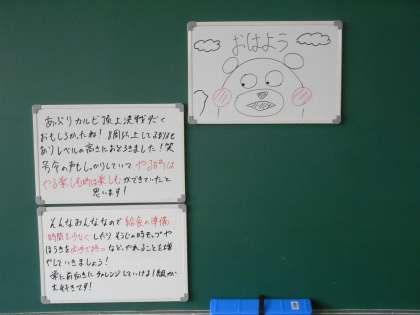 おはよう
あぶりカルビ頂上決戦だく
おもしろかったね! 1周以上してるけど
ありレベルの高さにおどろきました!笑
号令の声もしっかりしていて、やる時は
やる楽しむ時は楽しむができていたと
思います!
そんなみんななので給食の準備
時間を少なくしたり そうじの時モップや
ほうきを
など、やれることを増
やしていきましょう!
常に前向きにチャレンジしていける1組が
大好きです!